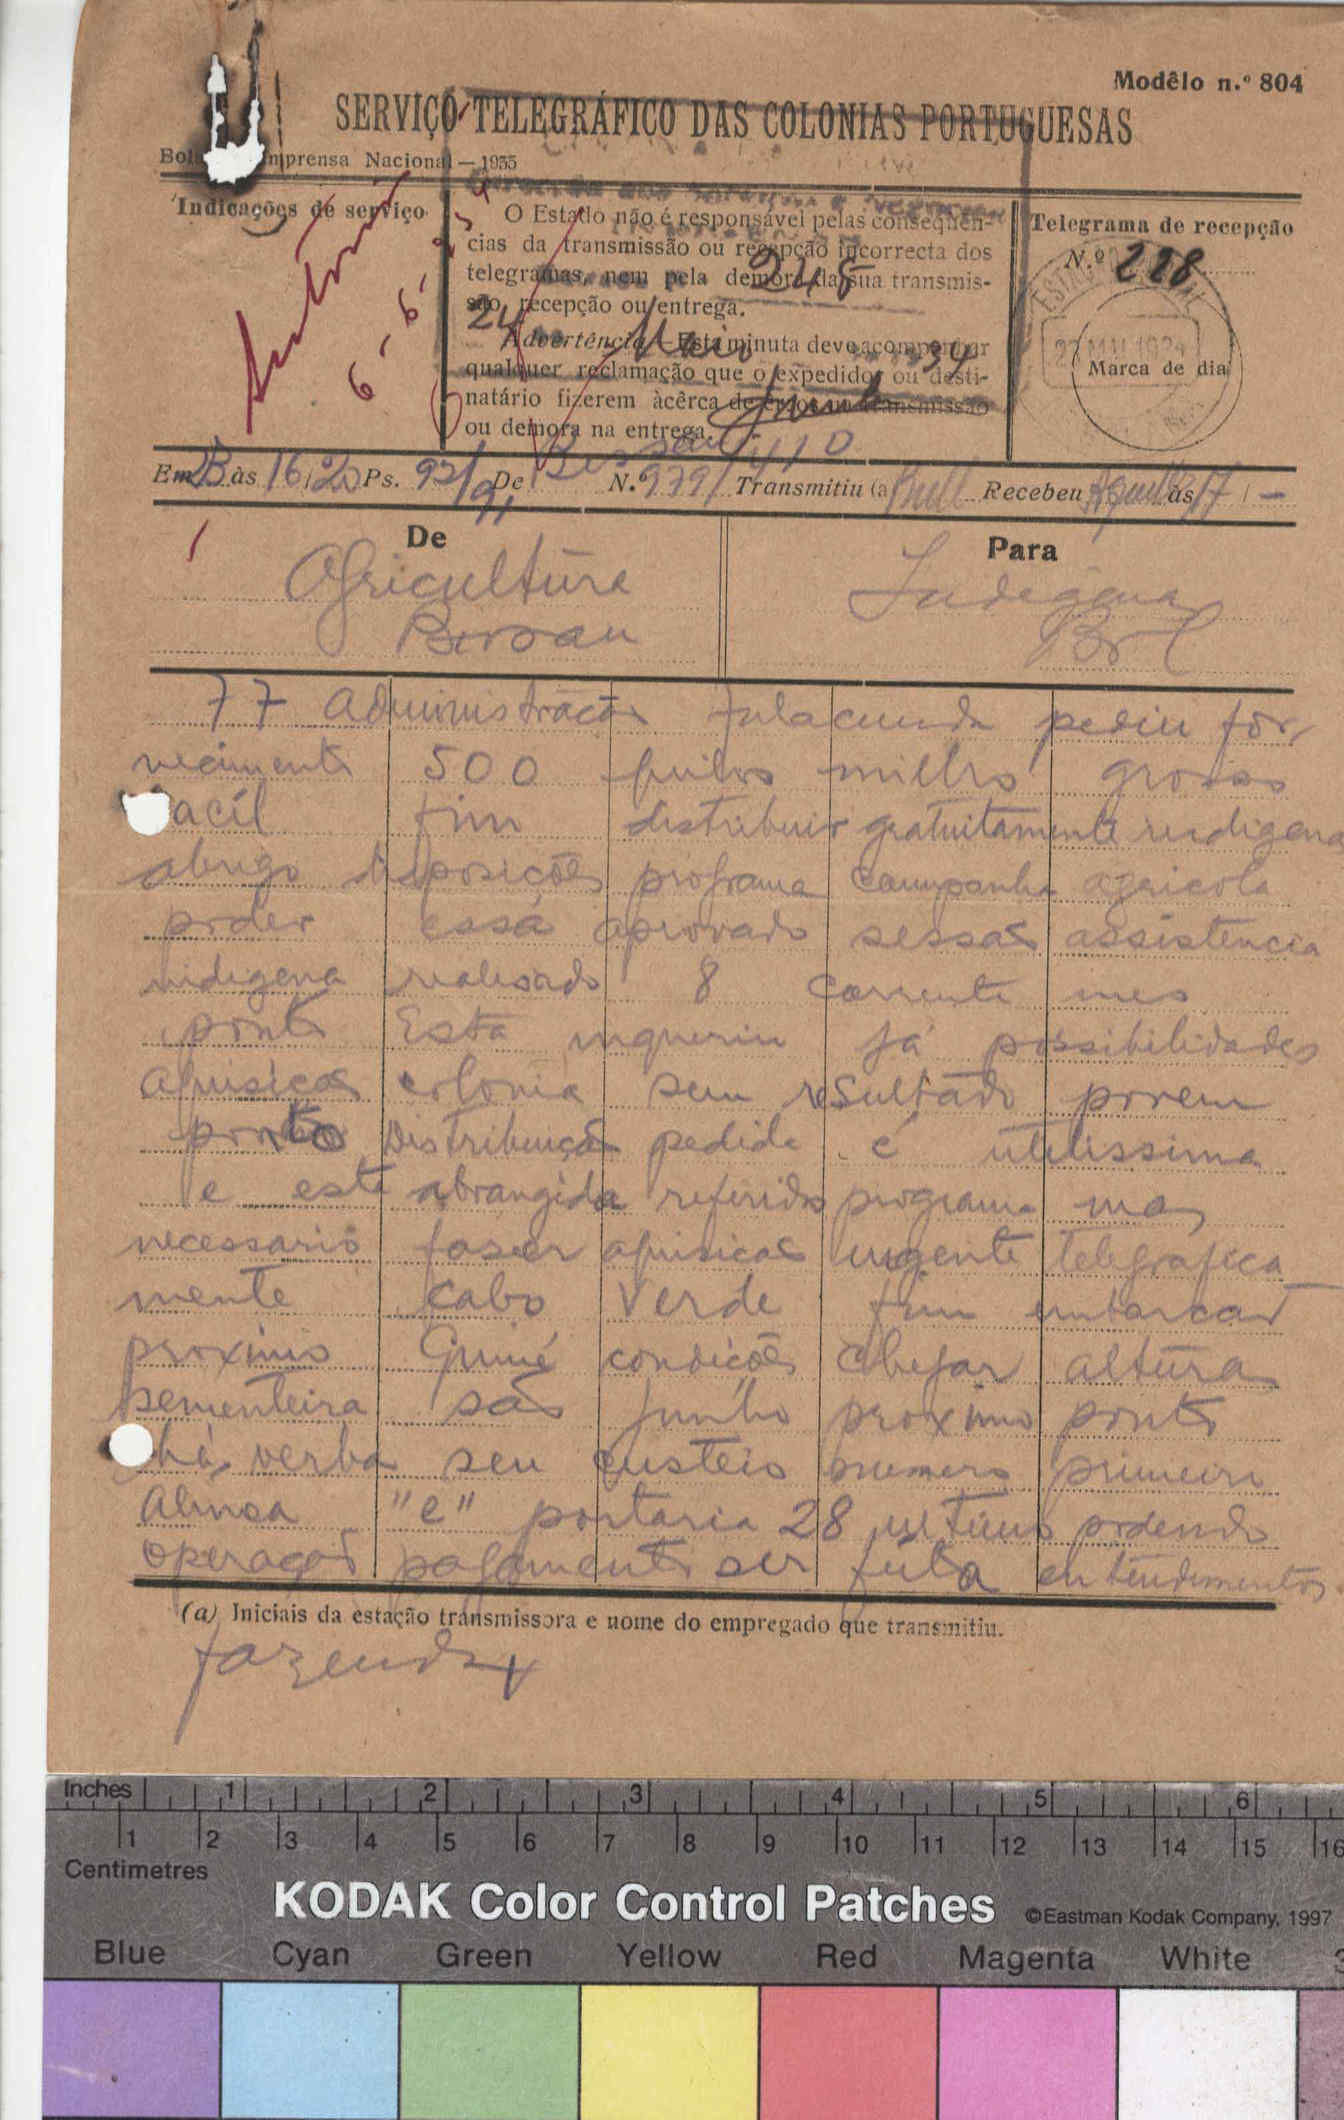 Modêlo n.º 804
SERVIÇO TELEGRÁFICO DAS COLONIAS PORTUGUESAS
Imprensa Nacional — 1935
Indicações de serviço
6-6-
O Estado não é responsável pelas conseqüên-
cias da transmissão ou recepção incorrecta dos
telegramas, nem pela demora da sua transmis-
são, recepção ou entrega.
Advertência — Esta minuta deve acompanhar
qualquer reclamação que o expedidor ou desti-
natário fizerem àcêrca de erros na transmissão
ou demora na entrega.
248
24
Maio 34
Telegrama de recepção
N.º 218
Marca de dia
Em 23 às 16/20 Ps. 92/91 De Bissau N.º 979/410 Transmitiu (a) Recebeu às 17/-
De
Para
Agricultura
Bissau
Indegena
Bol
77 Administracão Fulacunda pediu for
necimento 500 quilos milho grosso
acil fim distribuir gratuitamente indigena
abrigo disposições programa campanha agricola
poder essa aprovado sessão assistencia
indigena realisado 8 corrente mes
ponto Esta inqueriu já possibilidades
aquisicão colonia sem resultado porem
ponto Distribuição pedida é utilissima
e esta abrangida referido programa mas
necessario faser aquisicão urgente telegrafica
mente cabo verde fim embarcar
proximo Guiné condicões chegar altura
sementeira são junho proximo ponto
há verba seu custeio numero primeiro
alinea "e" portaria 28 ultimo podendo
operação pagamento ser feita entendimentos
(a) Iniciais da estação transmissora e nome do empregado que transmitiu.
fazenda x
Inches 1 2 3 4 5 6
1 2 3 4 5 6 7 8 9 10 11 12 13 14 15 16
Centimetres
KODAK Color Control Patches ©Eastman Kodak Company, 1997
Blue Cyan Green Yellow Red Magenta White 3